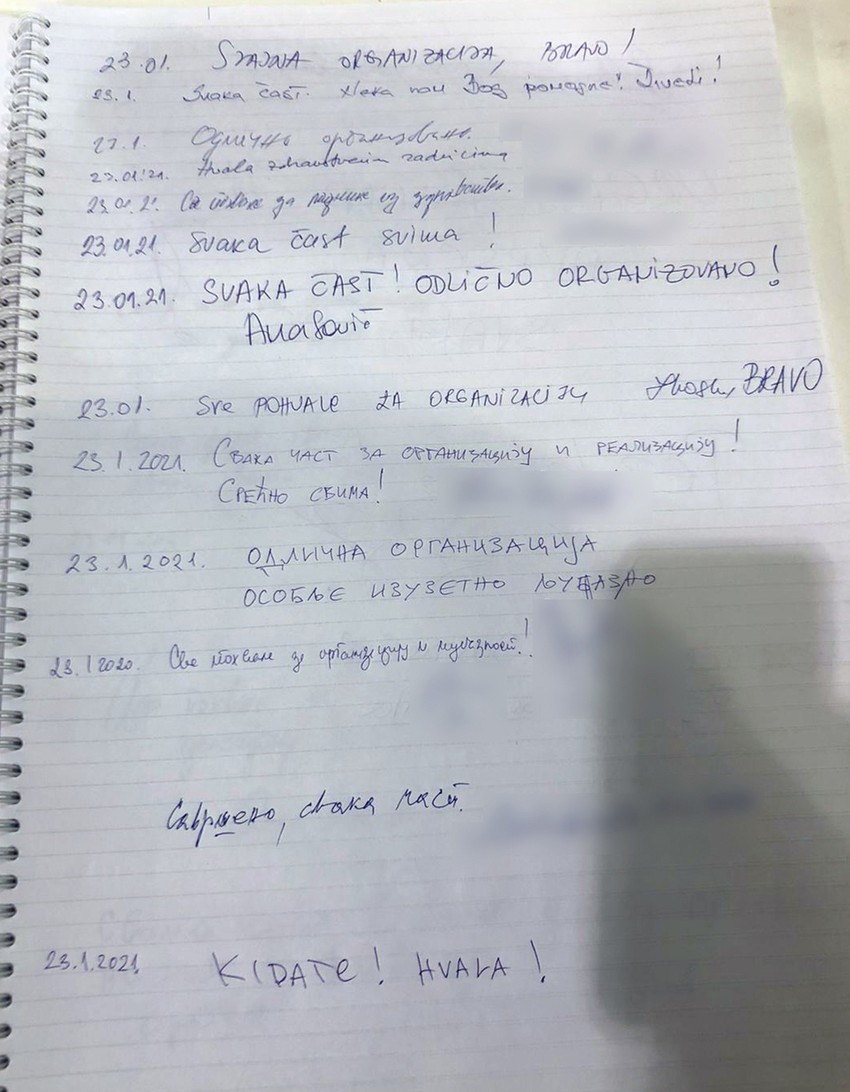 23.01. SJAJNA ORGANIZACIJA, BRAVO!
23.1. Svaka čast. Neka nam Bog pomogne! Živeli!
23.1. Одлично организовано.
23.01.21. Hvala zdravstvenim radnicima
23.01.21. Све похвале за
23.01.21. Svaka čast svima!
23.01.21. SVAKA ČAST! ODLIČNO ORGANIZOVANO!
23.01. Sve POHVALE ZA ORGANIZACIJU BRAVO
23.1.2021. СВАКА ЧАСТ ЗА ОРГАНИЗАЦИЈУ И РЕАЛИЗАЦИЈУ!
СРЕЋНО СВИМА!
23.1.2021. ОДЛИЧНА ОРГАНИЗАЦИЈА
ОСОБЉЕ ИЗУЗЕТНО ЉУБАЗНО
23.1.2020. Све похвале за организацију и љубазност!
Савршено, свака част.
23.1.2021. KIDATE! HVALA!